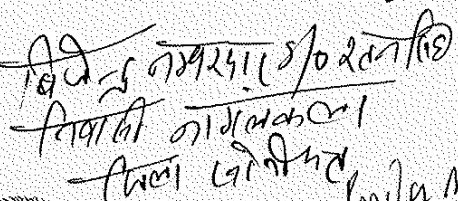 बिजेन्द्र नम्बरदार S/o रतन सिंह
निवासी नांगलकलां
जिला सोनीपत